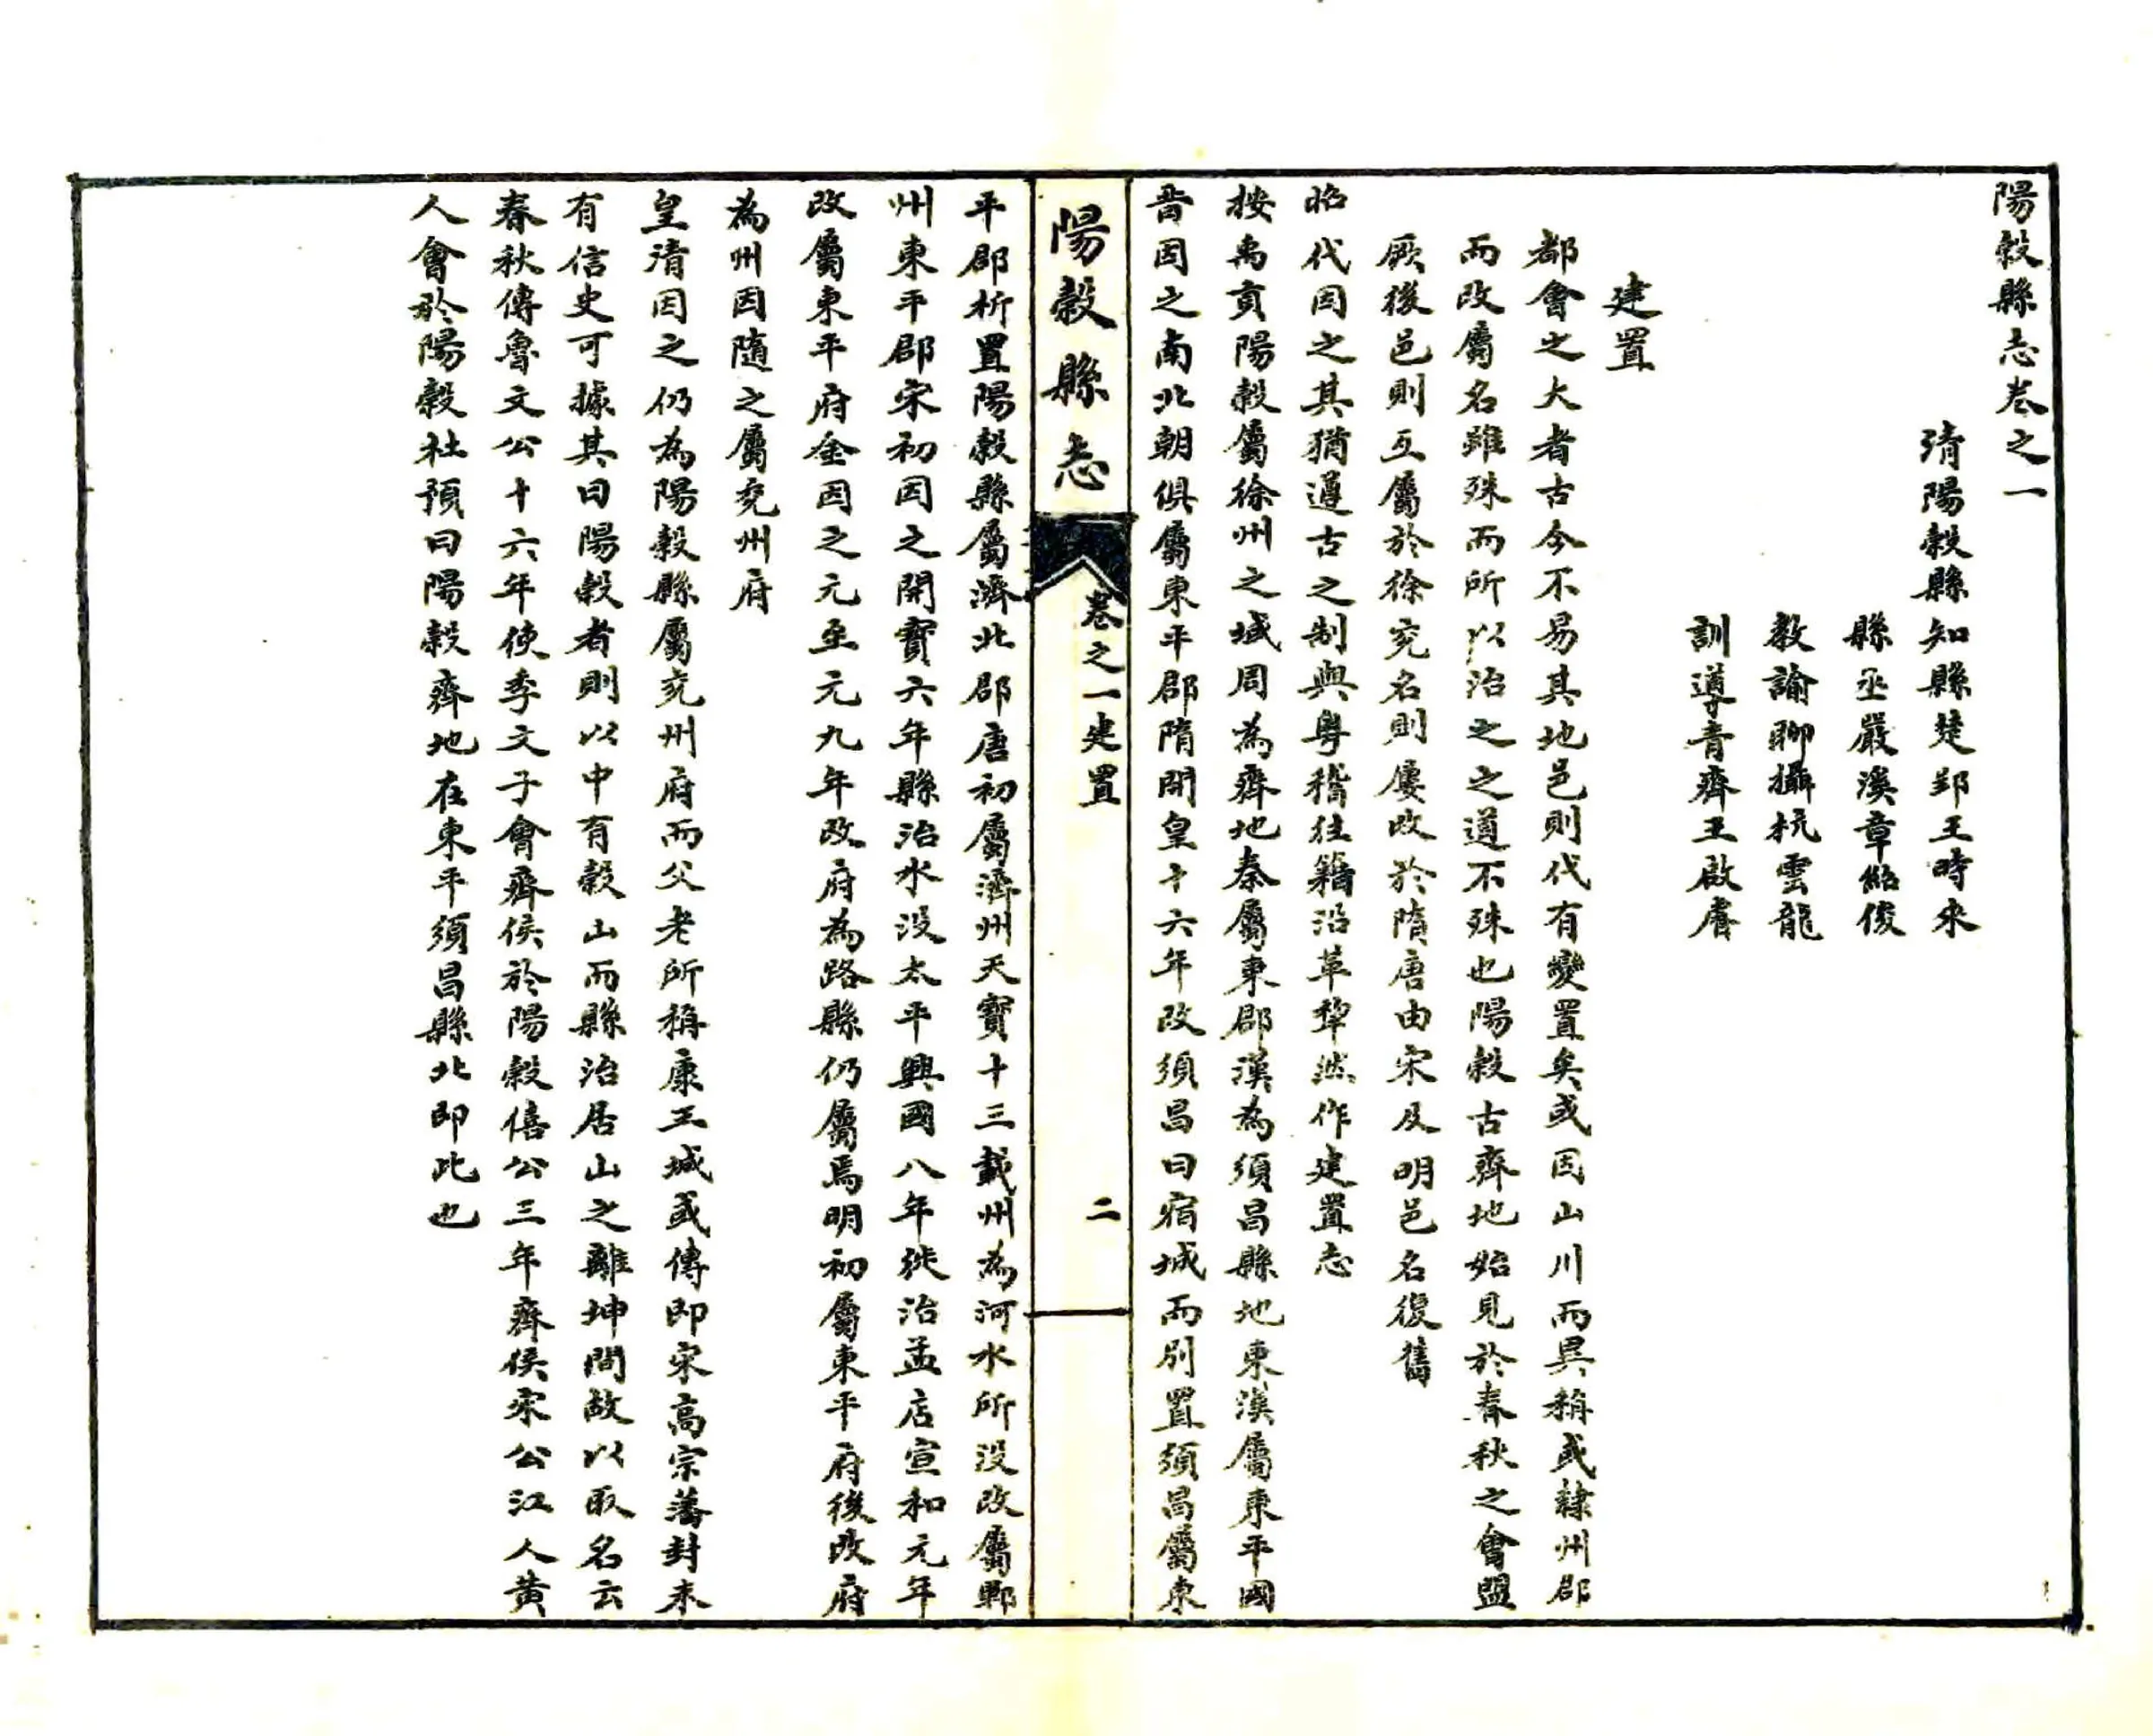 陽穀縣志卷之一
清陽穀縣知縣楚郢王時來
縣丞嚴溪章紹俊
教諭聊攝杭雲龍
訓導青齊王啟睿
建置
都會之大者古今不易其地邑則代有變置矣或因山川而異稱或隸州郡
而改屬名雖殊而所以治之之道不殊也陽穀古齊地始見於春秋之會盟
厥後邑則互屬於徐兗名則屢改於隋唐由宋及明邑名復舊
昭代因之其猶遵古之制與粵稽往籍沿革犂然作建置志
按禹貢陽穀屬徐州之域周為齊地秦屬東郡漢為須昌縣地東漢屬東平國
晉因之南北朝俱屬東平郡隋開皇十六年改須昌曰宿城而別置須昌屬東
陽穀縣志
卷之一建置
二
平郡析置陽穀縣屬濟北郡唐初屬濟州天寶十三載州為河水所沒改屬鄆
州東平郡宋初因之開寶六年縣治水沒太平興國八年徙治孟店宣和元年
改屬東平府金因之元至元九年改府為路縣仍屬焉明初屬東平府後改府
為州因隨之屬兗州府
皇清因之仍為陽穀縣屬兗州府而父老所稱康王城或傳即宋高宗藩封未
有信史可據其曰陽穀者則以中有穀山而縣治居山之離坤間故以取名云
春秋傳魯文公十六年使季文子會齊侯於陽穀僖公三年齊侯宋公江人黃
人會於陽穀社預曰陽穀齊地在東平須昌縣北即此也